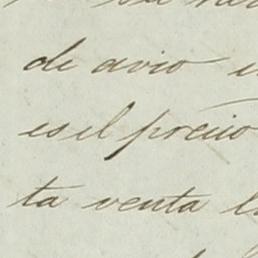 de avio
es el precio
ta venta